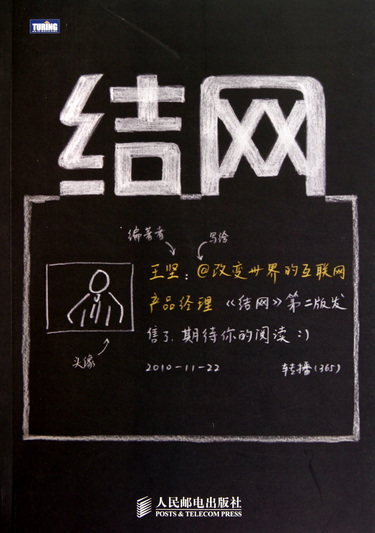 TURING
结网
编著者
写给
王坚：@改变世界的互联网
产品经理《结网》第二版发
售了，期待你的阅读：）
头像
2010-11-22
转播(365)
人民邮电出版社
POSTS & TELECOM PRESS